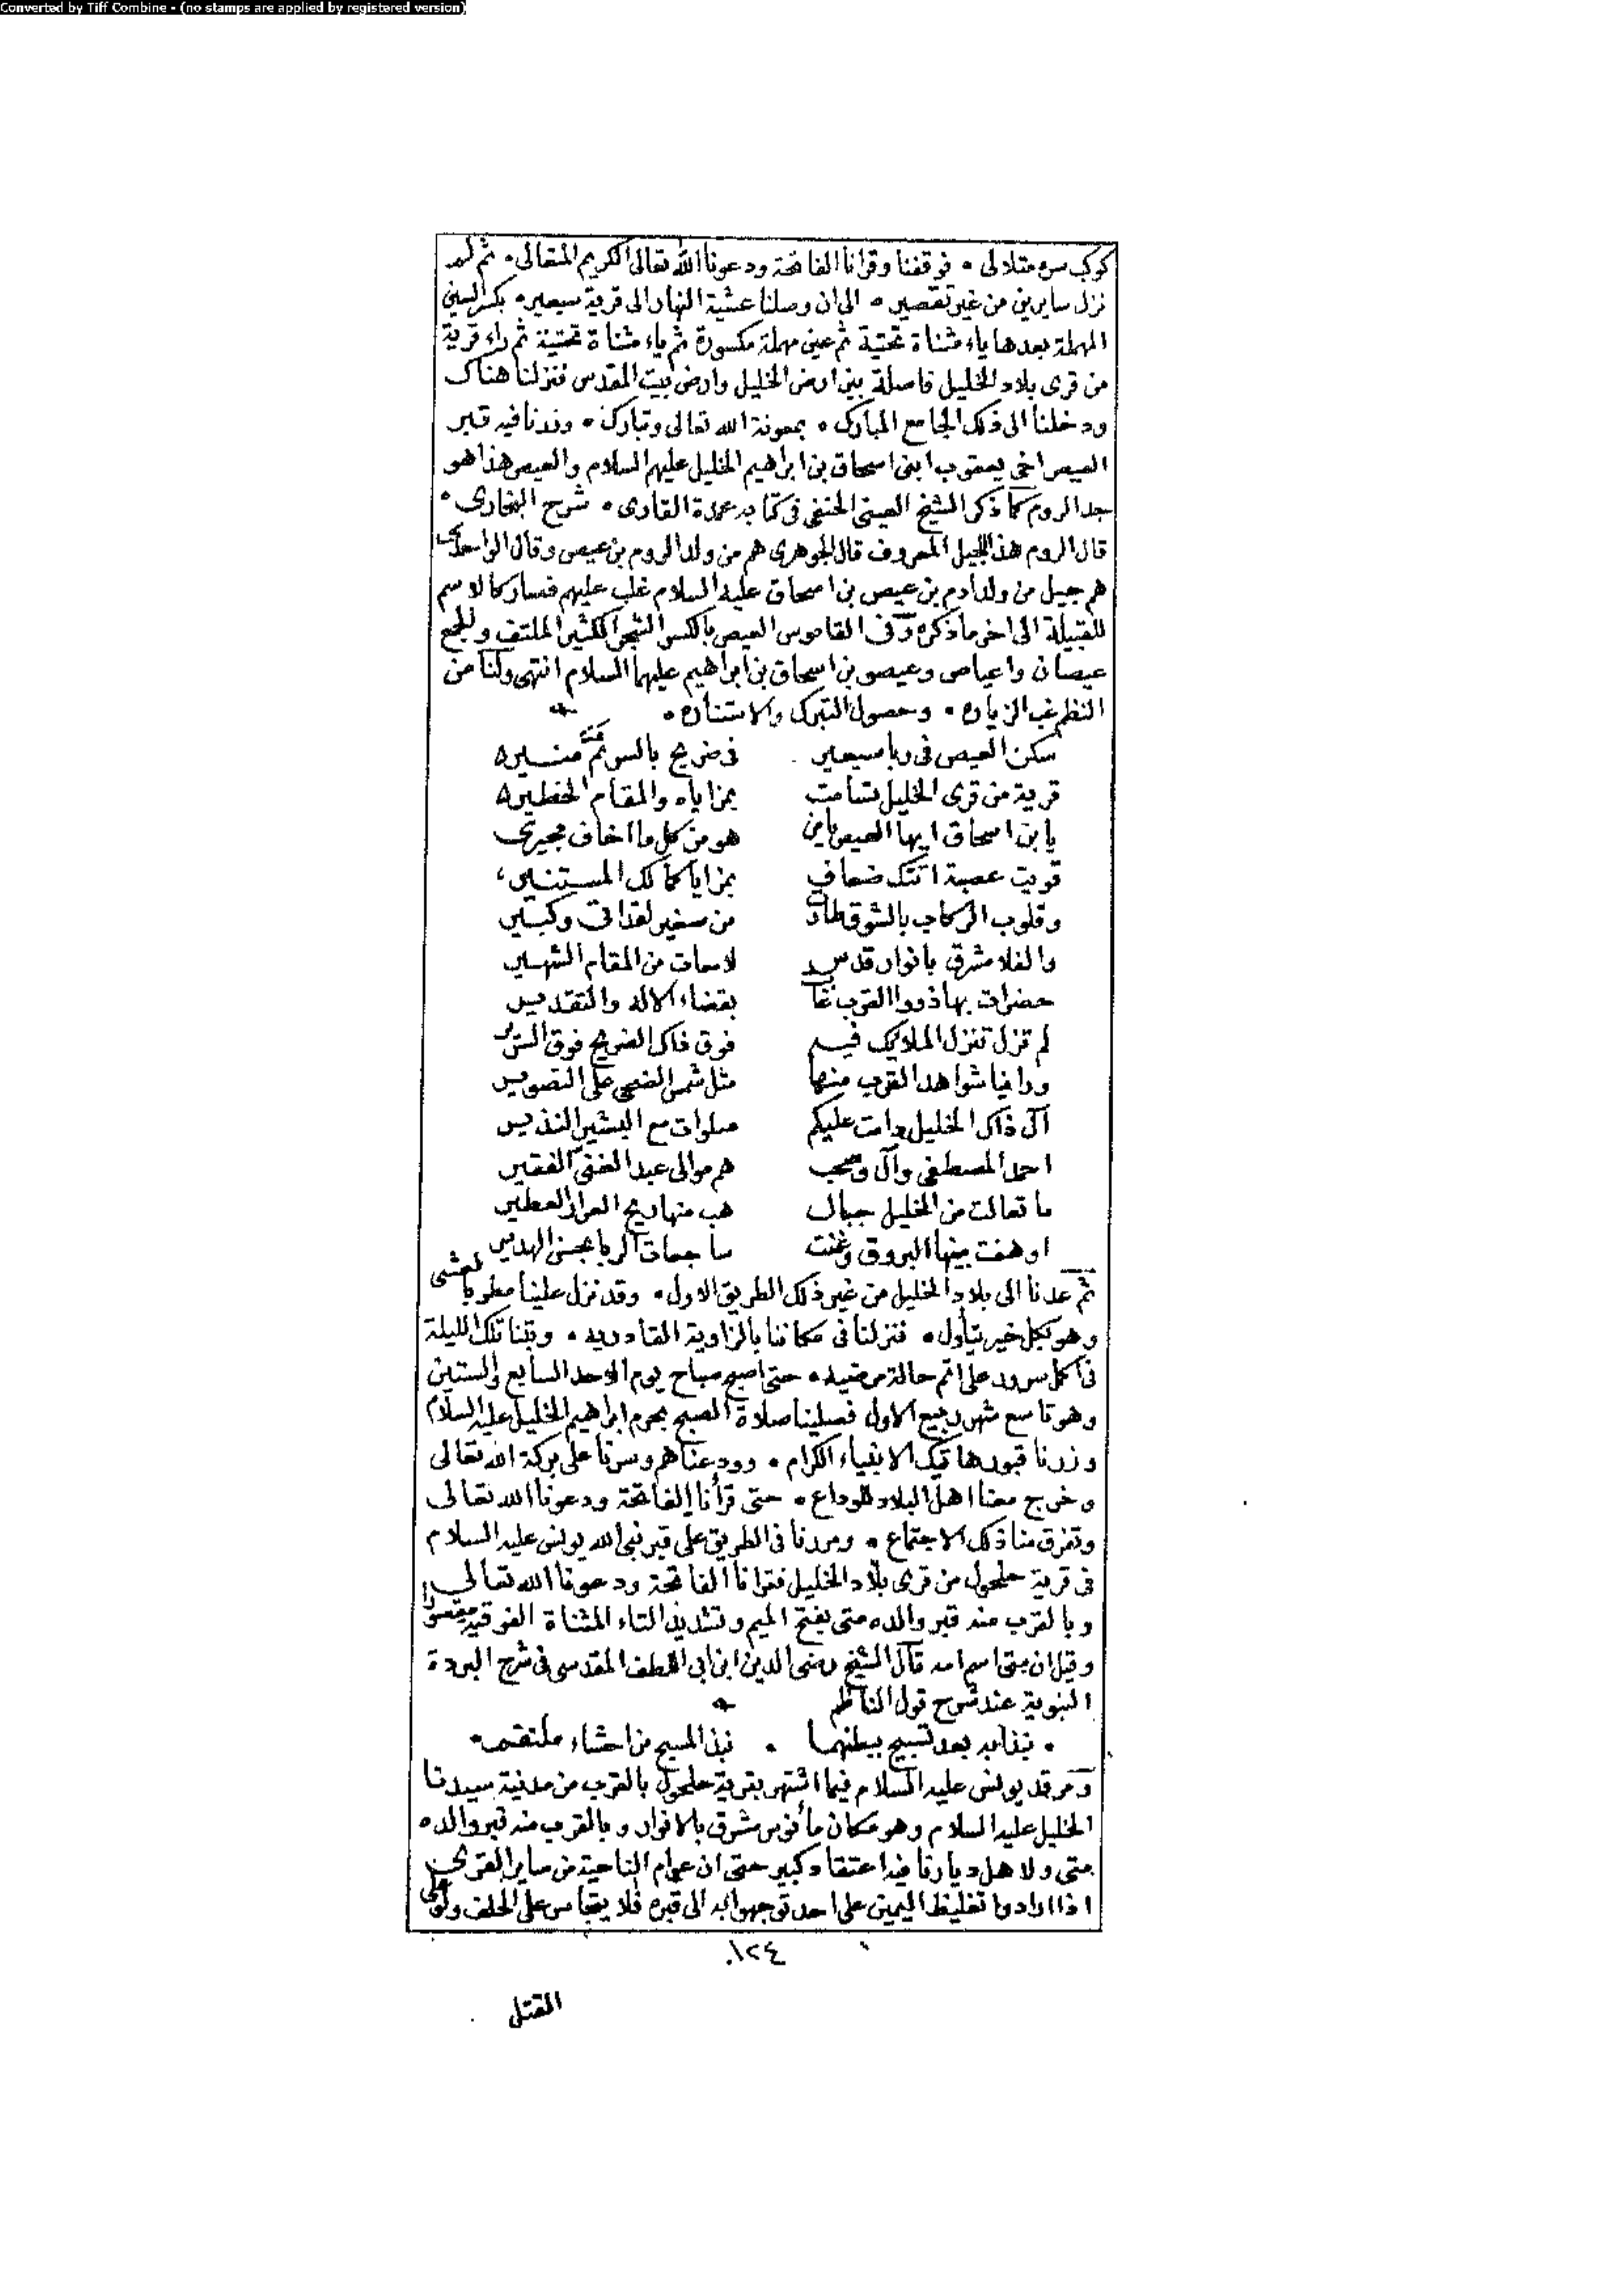 Converted by Tiff Combine - (no stamps are applied by registered version)
كوكب سره متلالى ۰ فوقفنا وقرانا الفاتحة ودعونا الله تعالى الكريم المتعالى ۰ ثم لم
نزل سايرين من غير تقصير ۰ الى ان وصلنا عشية النهار الى قرية سيعير ۰ بكسر السين
المهملة بعدها ياء مثناة تحتية ثم عين مهملة مكسورة ثم ياء مثناة تحتية ثم راء قرية
من قرى بلاد الخليل فاصلة بين ارض الخليل وارض بيت المقدس فنزلنا هناك
ودخلنا الى ذلك الجامع المبارك ۰ بمعونة الله تعالى وتبارك ۰ وزرنا فيه قبر
العيص اخى يعقوب ابنى اسحاق بن ابراهيم الخليل عليهم السلام والعيص هذا هو
جد الروم كما ذكر الشيخ العينى الحنفى فى كتابه عمدة القارى ۰ شرح البخارى ۰
قال الروم هذا الجيل المعروف قال الجوهرى هم من ولد الروم بن عيص وقال الواحدى
هم جيل من ولد ادم بن عيص بن اسحاق عليه السلام غلب عليهم فصار كالاسم
للقبيلة الى اخر ما ذكره وفى القاموس العيص بالكسر الشجر الكثير الملتف والجمع
عيصان واعياص وعيصو بن اسحاق بن ابراهيم عليهما السلام انتهى ولنا من
النظم غب الزياره ۰ وحصول التبرك والاستناره ۰
سكن العيص فى ربا سيعير فى ضريح بالسر ثمة منير
قرية من قرى الخليل تسامت بمزاياه والمقام الخطير
يا بن اسحاق ايها العيص يا من هو من كل ما اخاف مجيرى
قويت عصبة اتتك ضعاف بمزاياك كالمستنير
وقلوب الركاب بالشوق طارت من صغير لقد اتى وكبير
والفلا مشرق بانوار قدس لامعات من المقام الشهير
حضرات بها ذووا القرب بقضاء الاله والتقدير
لم تزل تنزل الملايك فيه فوق ذاك الضريح فوق السرير
وراينا شواهد القرب منها مثل شمس الضحى على التصوير
آل ذاك الخليل دامت عليكم صلوات مع البشير النذير
احمد المصطفى وآل وصحب هم موالى عبد الغنى الفقير
ما تعالت من الخليل جبال هب منها ريح العرار العطير
او هفت بينها البروق وغنت ساجعات الربا بحسن الهدير
ثم عدنا الى بلاد الخليل من غير ذلك الطريق الاول ۰ وقد نزل علينا مطر يا لعشى
وهو بكل خير يتأول ۰ فنزلنا فى مكاننا بالزاوية القادريه ۰ وبتنا تلك الليلة
فى اكمل سرور على اتم حالة مرضيه ۰ حتى اصبح صباح يوم الاحد السابع والستين
وهو تاسع شهر ربيع الاول فصلينا صلاة الصبح بحرم ابراهيم الخليل عليه السلام
وزرنا قبور هاتيك الانبياء الكرام ۰ وودعناهم وسرنا على بركة الله تعالى
وخرج معنا اهل البلاد للوداع ۰ حتى قرأنا الفاتحة ودعونا الله تعالى
وتفرق منا ذلك الاجتماع ۰ ومررنا فى الطريق على قبر نبى الله يونس عليه السلام
فى قرية حلحول من قرى بلاد الخليل فقرانا الفاتحة ودعونا الله تعالى
وبالقرب منه قبر والده متى بفتح الميم وتشديد التاء المثناة الفوقية مقصورا
وقيل ان متى اسم امه قال الشيخ رضى الدين ابن ابى اللطف المقدسى فى شرح البردة
النبوية عند شرح قول الناظم
۰ نبذا به بعد تسبيح ببطنهما ۰ نبذ المسبح من احشاء ملتقم ۰
ومرقد يونس عليه السلام فيما اشتهر بقرية حلحول بالقرب من مدينة سيدنا
الخليل عليه السلام وهو مكان مأنوس مشرق بالانوار وبالقرب منه قبر والده
متى ولاهل ديارنا فيه اعتقاد كبير حتى ان عوام الناحية من ساير القرى
اذا ارادوا تغليظ اليمين على احد توجهوا به الى قبره فلا يتجاسر على الحلف ولو على
١٢٤
القتل